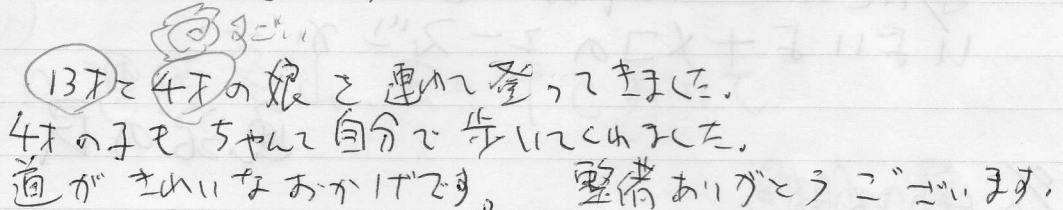 すごい
13才と4才の娘を連れて登ってきました。
4才の子もちゃんと自分で歩いてくれました。
道がきれいなおかげです。 整備ありがとうございます。